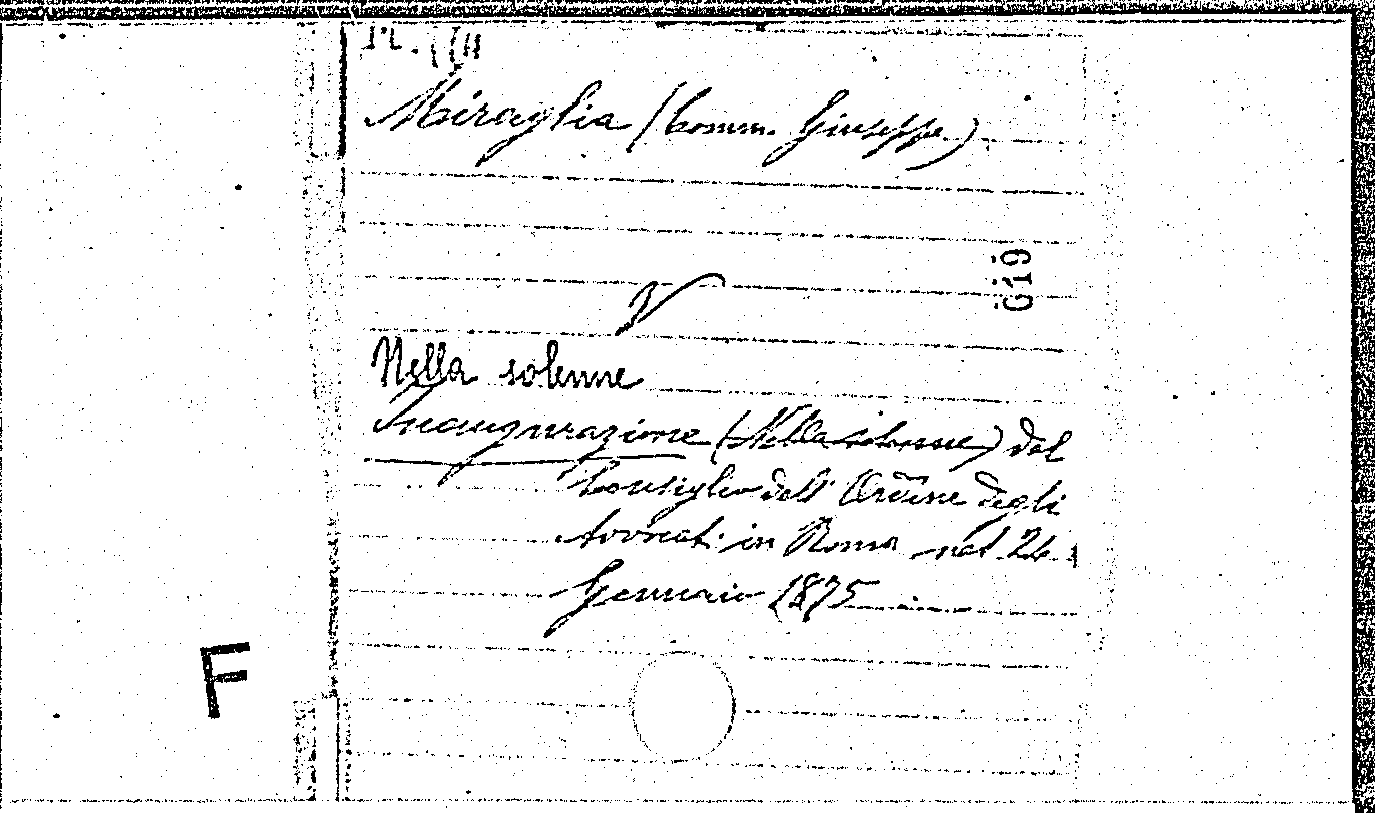 Miraglia (Comm. Giuseppe)
G19
Nella solenne
Inaugurazione (Nella solenne) del
Consiglio dell' Ordine degli
Avvocati in Roma nel 24
Gennaio 1875
F